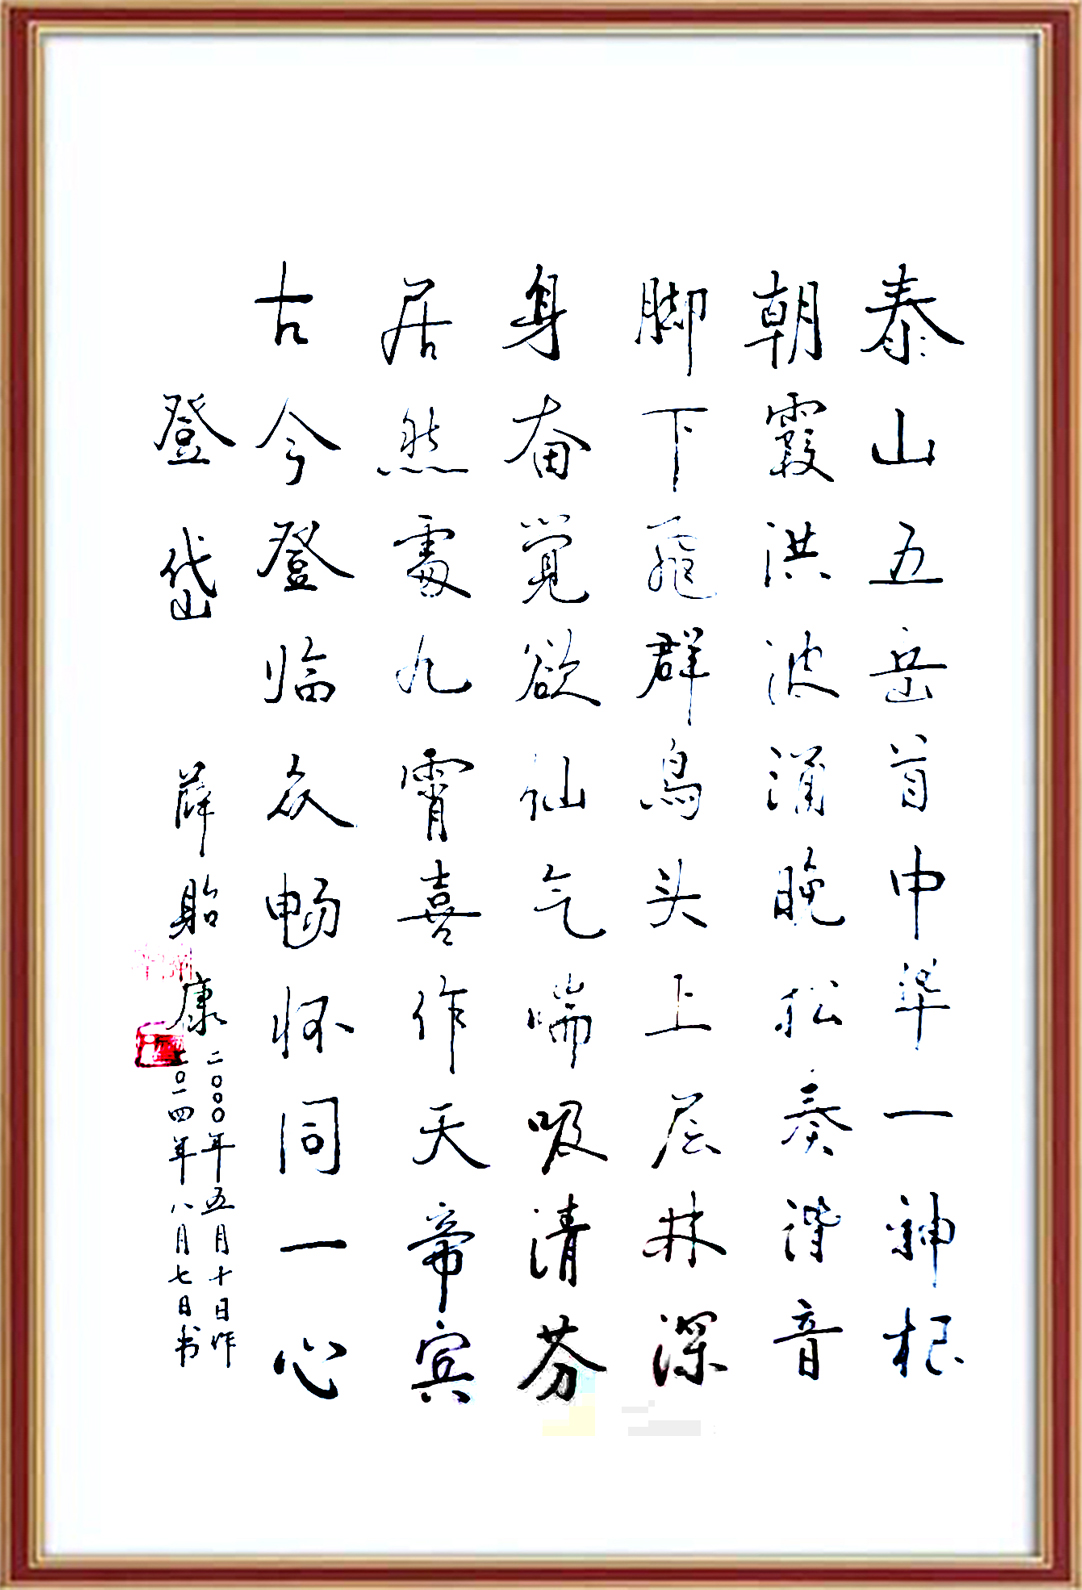 泰山五岳首中华一神根
朝霞洪波涌晚松奏谐音
脚下飞群鸟头上层林深
身奋觉欲仙气喘吸清芬
居然处九霄喜作天帝宾
古今登临众畅怀同一心
登岱 薛贻康
二〇〇〇年五月十日作
二〇一四年八月七日书